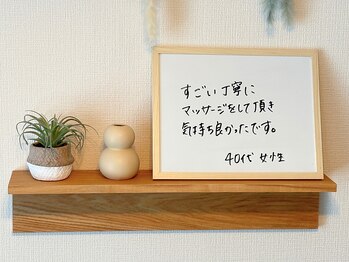 すごい丁寧に
マッサージをして頂き
気持ち良かったです。
40代 女性